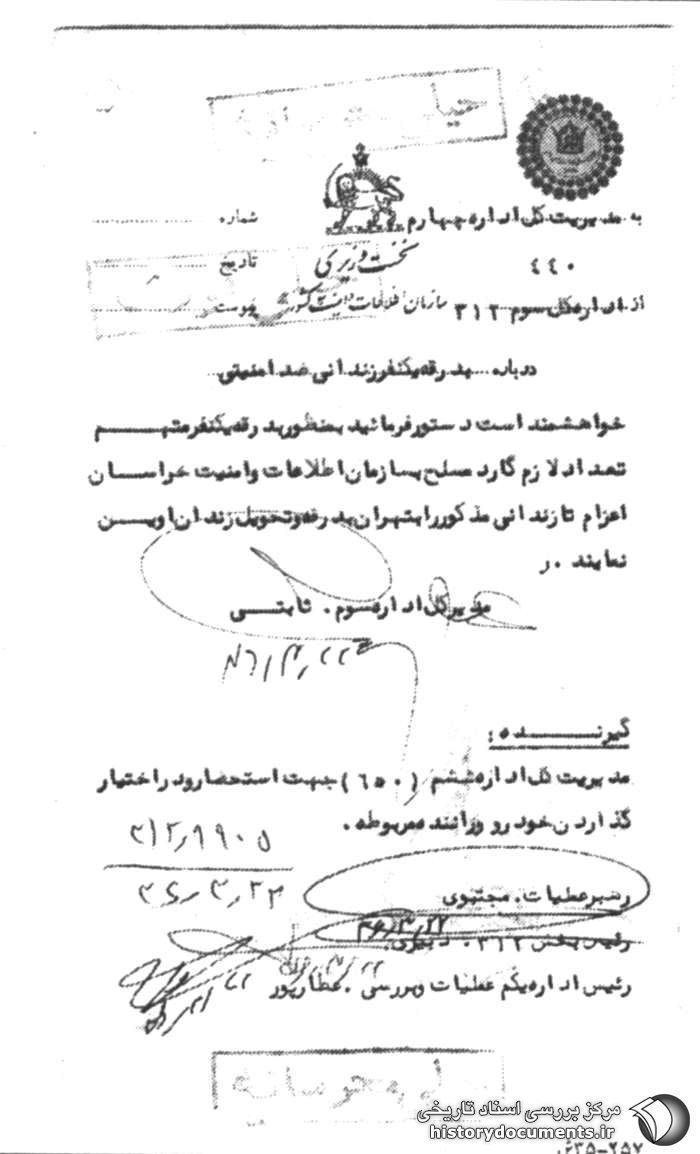 به مدیریت کل اداره چهارم
شماره
نخست وزیری
۴۴۰
تاریخ
از اداره کل سوم ۳۱۲
سازمان اطلاعات و امنیت کشور
پیوست
درباره بدرقه یکنفر زندانی ضد امنیتی
خواهشمند است دستور فرمائید بمنظور بدرقه یکنفر متهم
تعداد لازم گارد مسلح بسازمان اطلاعات و امنیت خراسان
اعزام تا زندانی مذکور را بتهران بدرقه و تحویل زندان اوین
نمایند . ر
مدیر کل اداره سوم . ثابتی
گیرنده :
مدیریت کل اداره ششم (۶۵۰) جهت استحضار و در اختیار
گذاردن خودرو و راننده مربوطه .
۳۱۲٫۹۹۰۵
رهبر عملیات . مجتبوی
۳۶٫۳٫۲۲
رئیس بخش ۳۱۲ .
رئیس اداره یکم عملیات و بررسی . عطارپور
مرکز بررسی اسناد تاریخی
historydocuments.ir
۳۵-۲۵۷ش